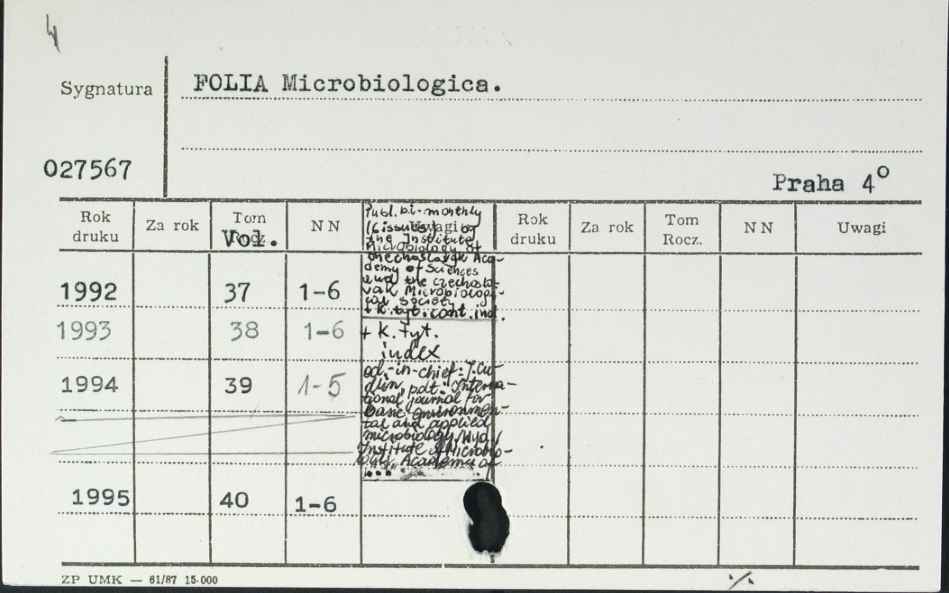 Sygnatura
FOLIA Microbiologica.
027567
Praha 4°
Rok druku
Za rok
Tom Rocz.
Vol.
NN
Uwagi
Rok druku
Za rok
Tom Rocz.
NN
Uwagi
Publ. bi-monthly
(6 issues) by
the Institute
Microbiology of
Czechoslovak Aca-
demy of Sciences
and the Czechoslo-
vak Microbiologi-
cal Society
+ k. tyt. cont. ind.
1992 37 1-6
1993 38 1-6 + k. tyt.
index
1994 39 1-5
ed.-in-chief: J. Cu-
dlin, pdt. Interna-
tional journal for
basic environmen-
tal and applied
microbiology, Wyd.
Institute of Microbio-
logy, Academy of
...
1995 40 1-6
ZP UMK — 61/87 15.000
./.